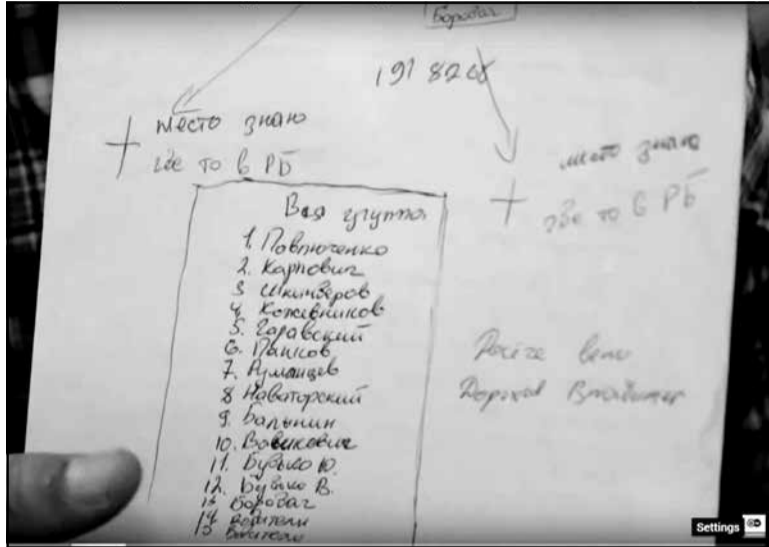 Бородач
191 8268
место знаю
где то в РБ
место знаю
где то в РБ
Вся группа
1. Павлюченко
2. Карпович
3 Шкинзеров
4 Кожевников
5. Гаравский
6. Панков
7. Румянцев
8 Наваторский
9. Балынин
10. Вовикович
11. Бузько Ю.
12. Бузько В.
13 Бородач
14 водители
15 водители
Settings